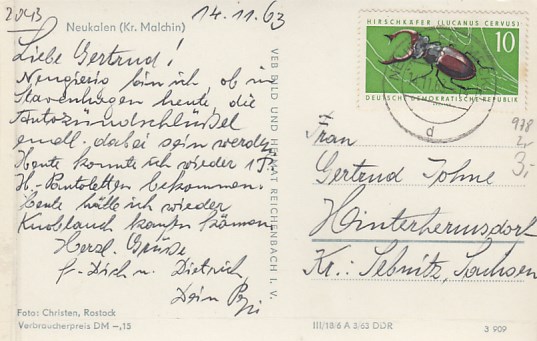 2043
14.11.63
Neukalen (Kr. Malchin)
Liebe Gertrud!
Neugierig bin ich, ob in
Stavenhagen heute die
Autozündschlüssel
endl. dabei sein werden.
Heute konnte ich wieder 1 P.
H.-Pantoletten bekommen.
Heute hätte ich wieder
Knoblauch kaufen können.
Herzl. Grüße
f. Dich u. Dietrich
Dein
Foto: Christen, Rostock
Verbraucherpreis DM -,15
VEB BILD UND HEIMAT REICHENBACH I. V.
HIRSCHKÄFER (LUCANUS CERVUS)
10
DEUTSCHE DEMOKRATISCHE REPUBLIK
d
978
3,-
Frau
Gertrud Johne
Hinterhermsdorf
Kr.: Sebnitz, Sachsen
III/18/6 A 3/63 DDR
3 909